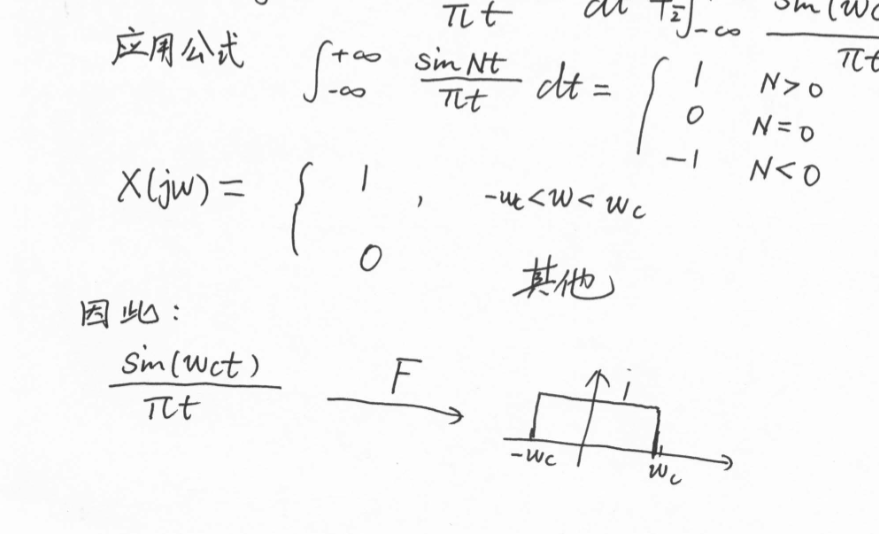 πt dt 1/2∫-∞ sin(wc
πt
应用公式 ∫-∞+∞ sinNt/πt dt = { 1 N>0
0 N=0
-1 N<0
X(jw) = { 1 , -wc<w<wc
0 其他
因此:
sin(wct)/πt F → 1
-wc wc